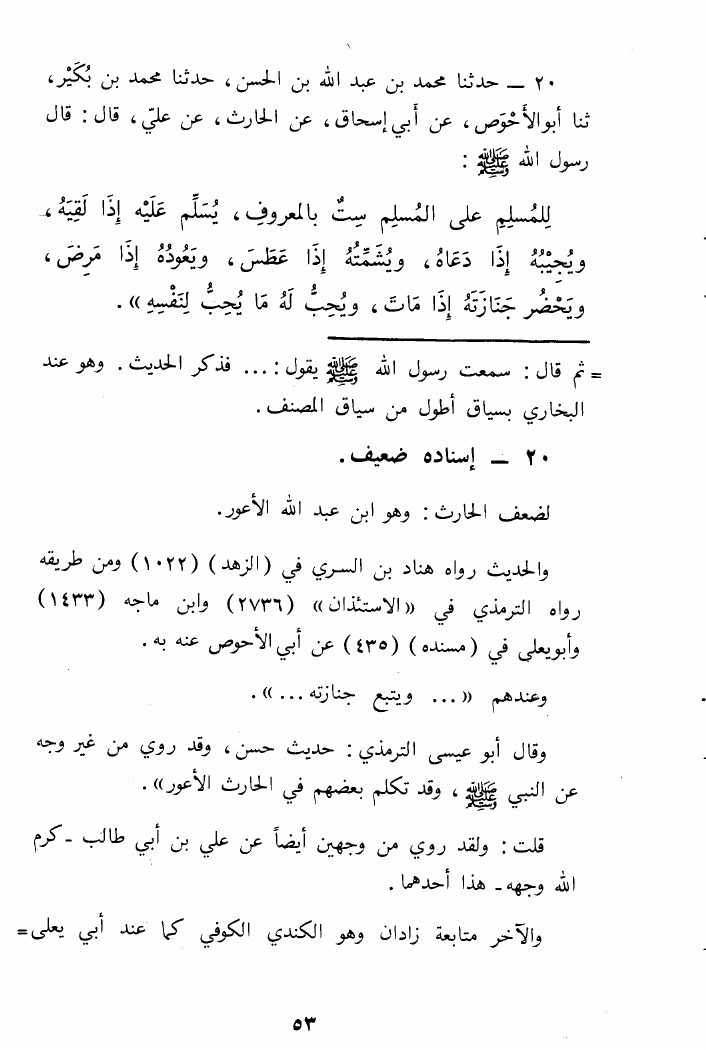 ٢٠ ــ حدثنا محمد بن عبد الله بن الحسن، حدثنا محمد بن بُكَيْر،
ثنا أبوالأَحْوَص، عن أَبي إسحاق، عن الحارث، عن عليّ، قال: قال
رسول الله ﷺ:
لِلمُسلِمِ على المُسلِمِ سِتٌ بالمعروفِ، يُسَلِّم عَلَيْه إِذَا لَقِيَهُ،
ويُجِيْبُهُ إِذَا دَعَاهُ، ويُشَمِّتُهُ إِذَا عَطَسَ، ويَعُودُهُ إِذَا مَرِضَ،
ويَحْضُر جَنَازَتَهُ إِذَا مَاتَ، ويُحِبُّ لَهُ مَا يُحِبُّ لِنَفْسِهِ».
= ثم قال: سمعت رسول الله ﷺ يقول:... فذكر الحديث. وهو عند
البخاري بسياق أطول من سياق المصنف.
٢٠ ــ إسناده ضعيف.
لضعف الحارث: وهو ابن عبد الله الأعور.
والحديث رواه هناد بن السري في (الزهد) (١٠٢٢) ومن طريقه
رواه الترمذي في «الاستئذان» (٢٧٣٦) وابن ماجه (١٤٣٣)
وأبويعلى في (مسنده) (٤٣٥) عن أبي الأحوص عنه به.
وعندهم «... ويتبع جنازته...».
وقال أبو عيسى الترمذي: حديث حسن، وقد روي من غير وجه
عن النبي ﷺ، وقد تكلم بعضهم في الحارث الأعور».
قلت: ولقد روي من وجهين أيضاً عن علي بن أبي طالب ـ كرم
الله وجهه ـ هذا أحدهما.
والآخر متابعة زادان وهو الكندي الكوفي كما عند أبي يعلى=
٥٣